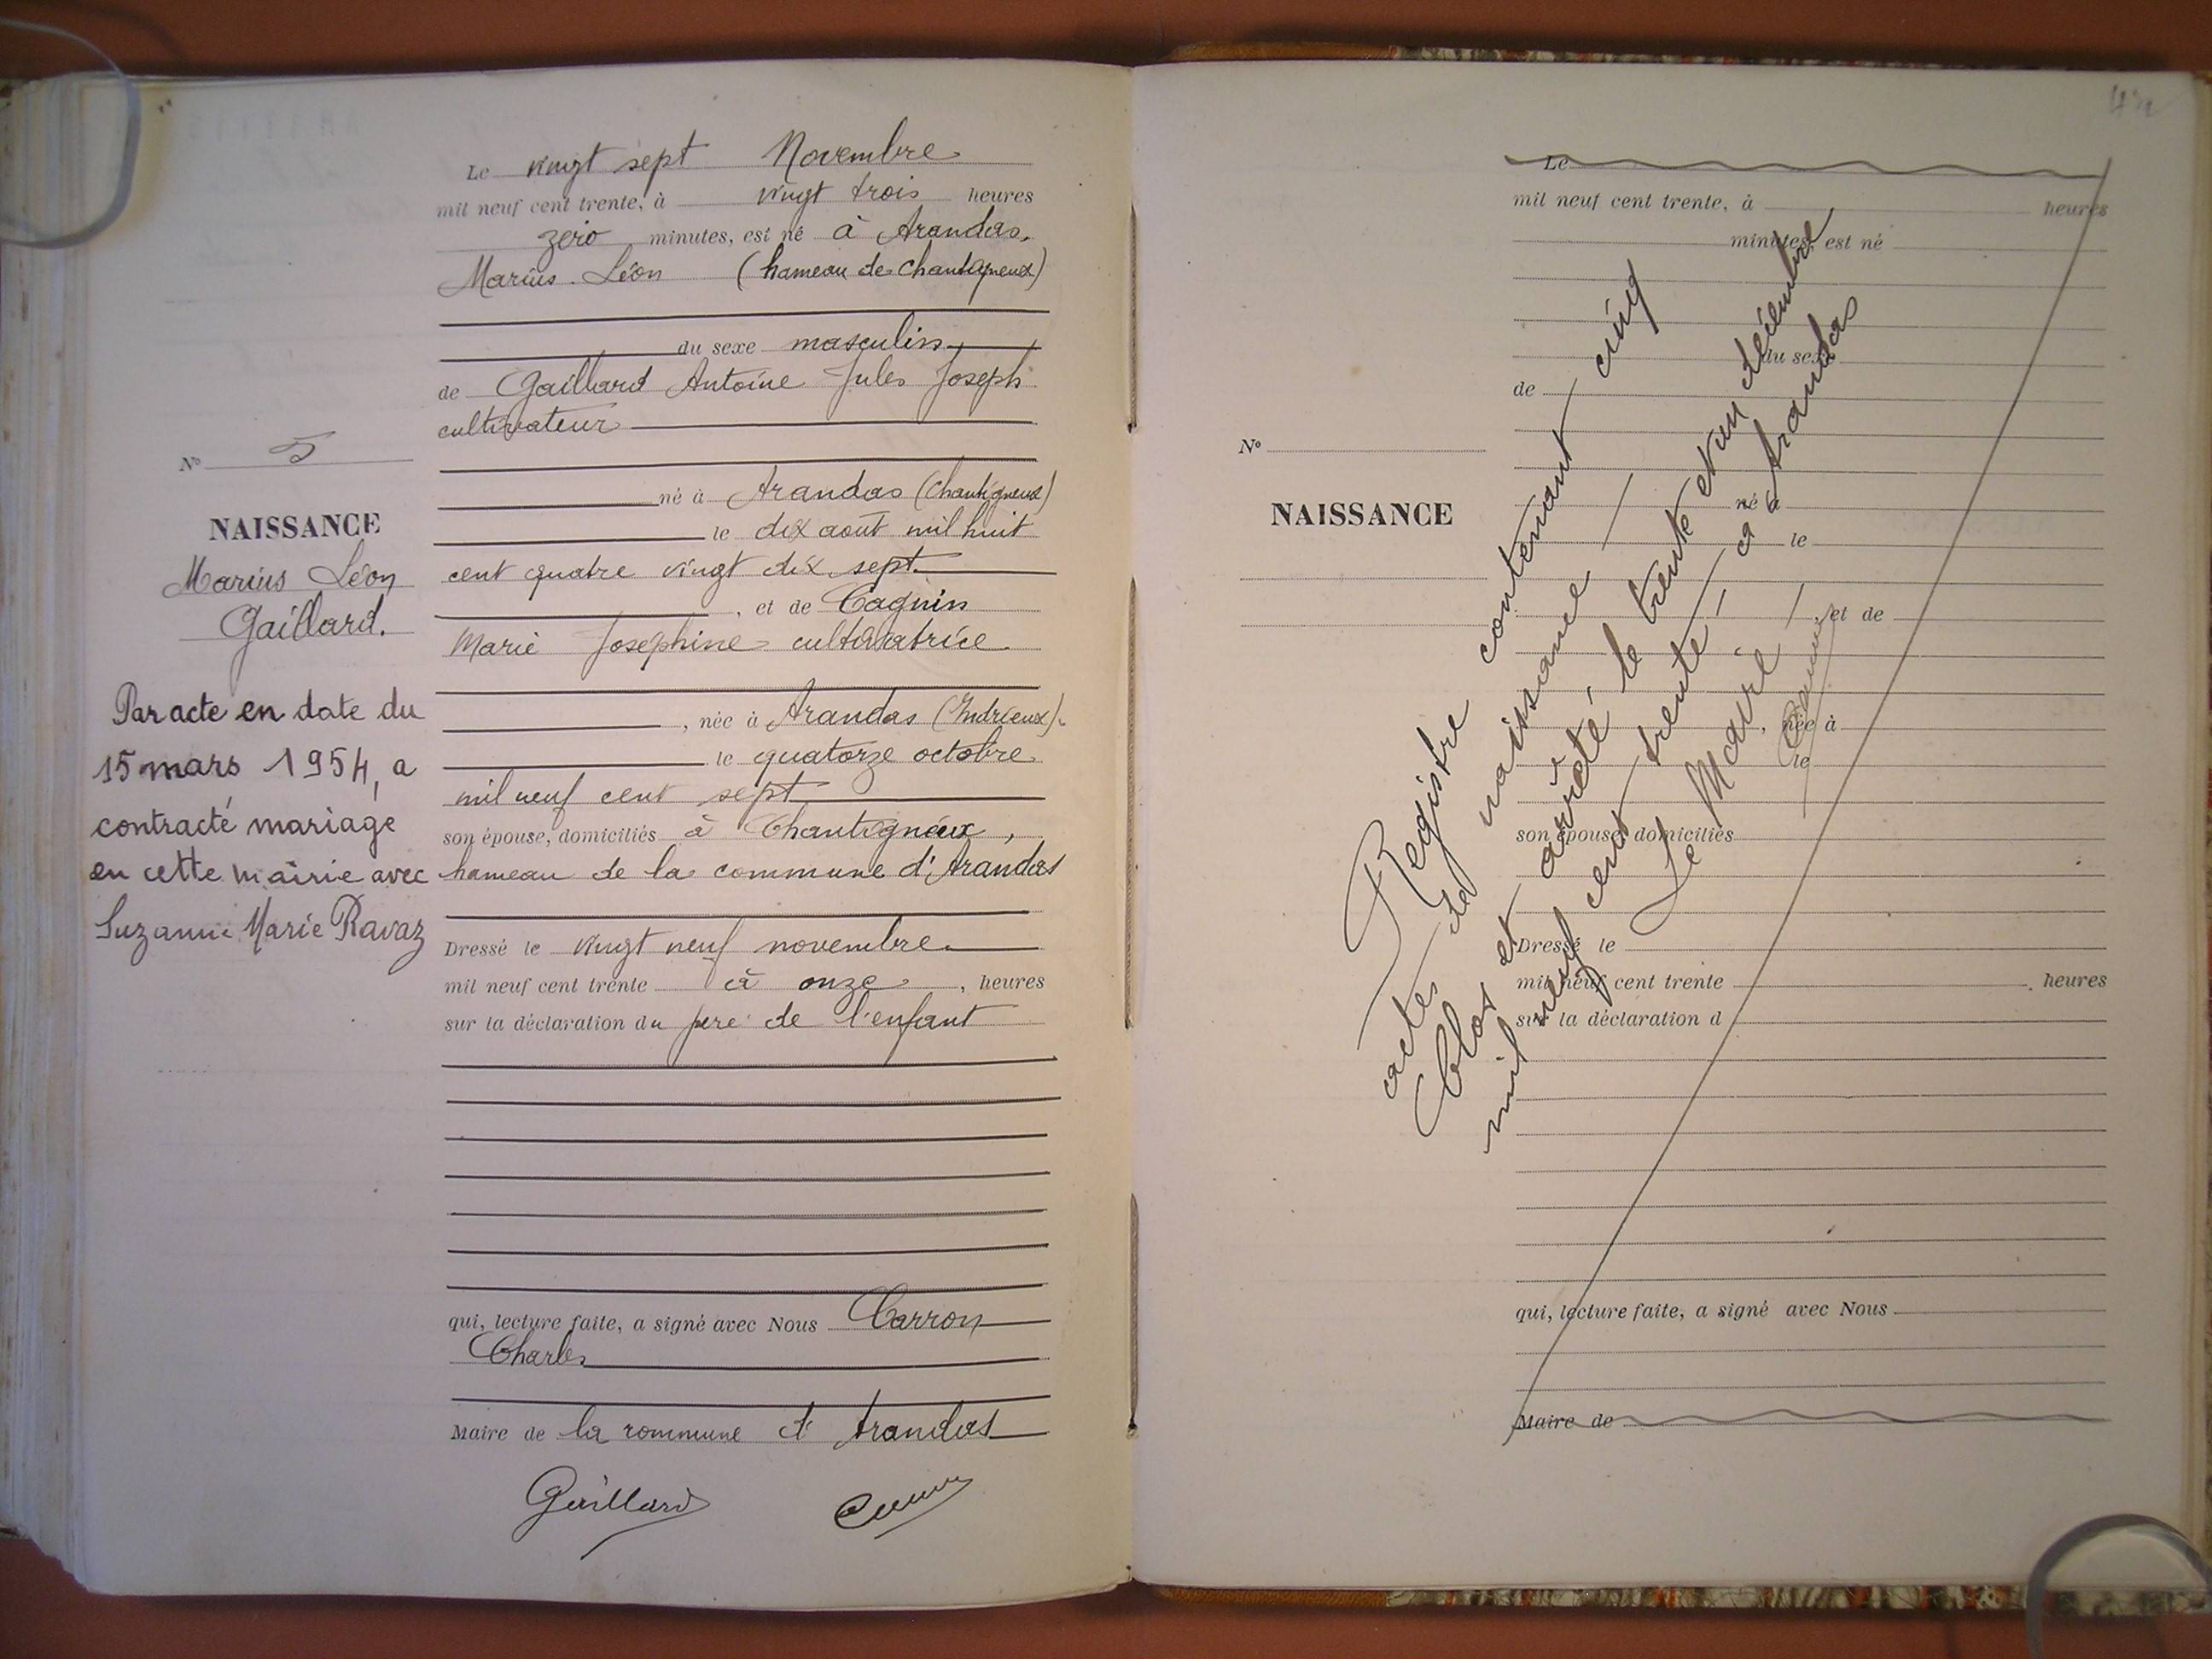 Le vingt sept Novembre
mil neuf cent trente, à vingt trois heures
zéro minutes, est né à Arandas,
Marius Léon (hameau de Chantigneux)
du sexe masculin
de Gaillard Antoine Jules Joseph
cultivateur
né à Arandas (Chantigneux)
le dix août mil huit
cent quatre vingt dix sept
, et de Cagnin
Marie Josephine cultivatrice
, née à Arandas (Indrieux).
le quatorze octobre
mil neuf cent sept
son épouse, domiciliés à Chantigneux,
hameau de la commune d'Arandas
Dressé le vingt neuf novembre
mil neuf cent trente à onze , heures
sur la déclaration du père de l'enfant
qui, lecture faite, a signé avec Nous Carron
Charles
Maire de la commune d'Arandas
Gaillard
N° 5
NAISSANCE
Marius Léon
Gaillard.
Par acte en date du
15 mars 1954, a
contracté mariage
en cette mairie avec
Suzanne Marie Ravaz
Le
mil neuf cent trente, à heures
minutes, est né
du sexe
de
né à
le
, et de
, née à
le
son épouse, domiciliés
Dressé le
mil neuf cent trente , heures
sur la déclaration d
qui, lecture faite, a signé avec Nous
Maire de
N°
NAISSANCE
Registre contenant cinq
actes de naissance
Clos et arrêté, le trente et un décembre
mil neuf cent trente à Arandas
Le Maire